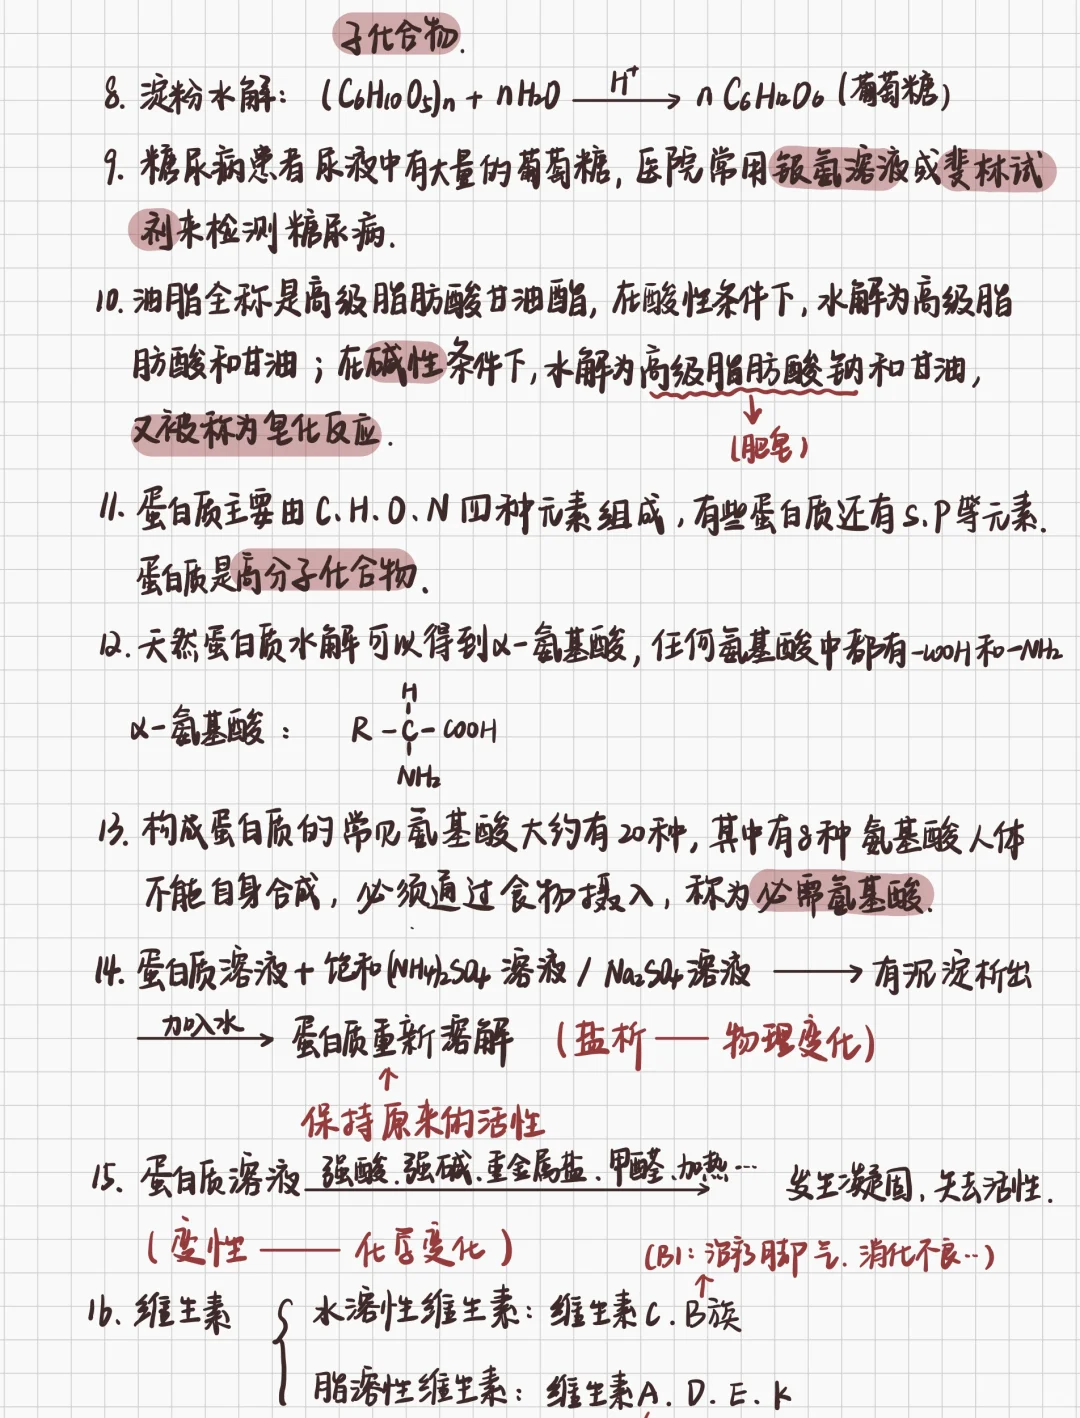 子化合物.
8. 淀粉水解: (C6H10O5)n + nH2O —H⁺→ n C6H12O6 (葡萄糖)
9. 糖尿病患者尿液中有大量的葡萄糖, 医院常用银氨溶液或斐林试
剂来检测糖尿病.
10. 油脂全称是高级脂肪酸甘油酯, 在酸性条件下, 水解为高级脂
肪酸和甘油; 在碱性条件下, 水解为高级脂肪酸钠和甘油,
↓
又被称为皂化反应.
(肥皂)
11. 蛋白质主要由C、H、O、N四种元素组成, 有些蛋白质还有S、P等元素.
蛋白质是高分子化合物.
12. 天然蛋白质水解可以得到α-氨基酸, 任何氨基酸中都有-COOH和-NH2
H
α-氨基酸: R-C-COOH
NH2
13. 构成蛋白质的常见氨基酸大约有20种, 其中有8种氨基酸人体
不能自身合成, 必须通过食物摄入, 称为必需氨基酸.
14. 蛋白质溶液+饱和(NH4)2SO4溶液/Na2SO4溶液 ⟶ 有沉淀析出
—加入水→ 蛋白质重新溶解 (盐析——物理变化)
↑
保持原来的活性
15. 蛋白质溶液 —强酸.强碱.重金属盐.甲醛.加热…→ 发生凝固, 失去活性.
(变性——化学变化)
(B1: 治疗脚气. 消化不良…)
↑
16. 维生素 { 水溶性维生素: 维生素C. B族
脂溶性维生素: 维生素A. D. E. K